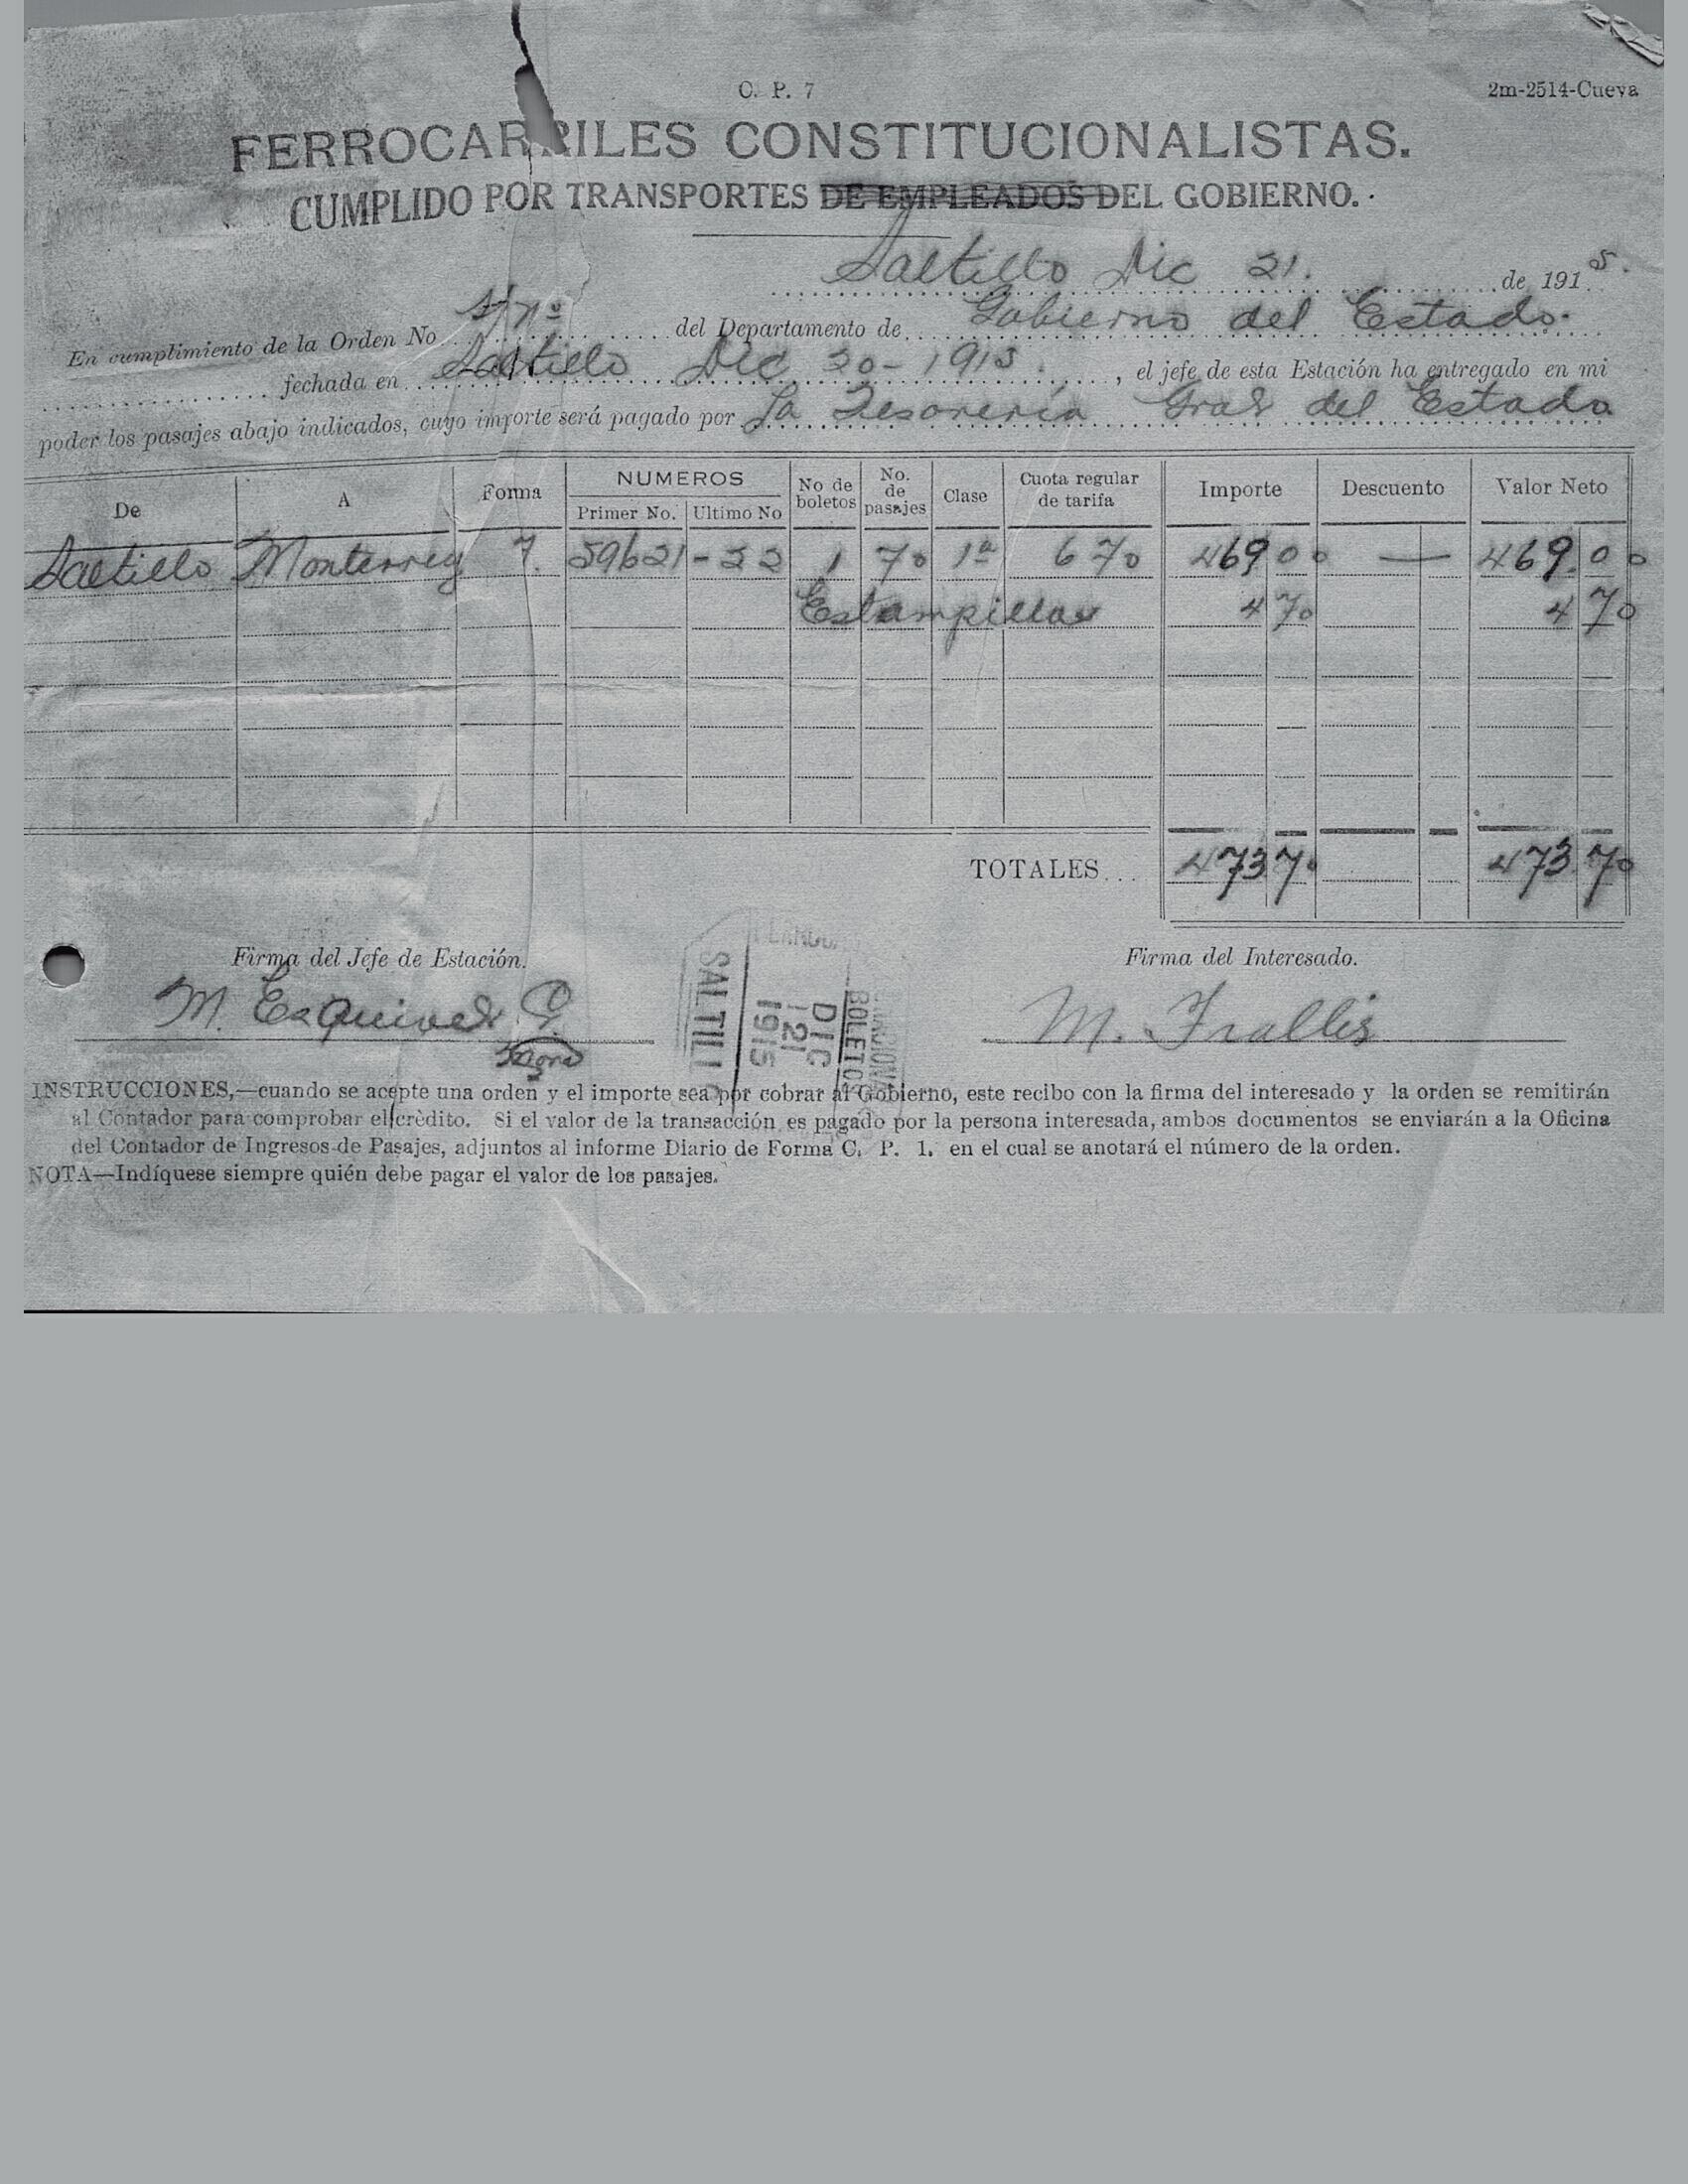 C. P. 7
2m-2514-Cueva
FERROCARRILES CONSTITUCIONALISTAS.
CUMPLIDO POR TRANSPORTES DE EMPLEADOS DEL GOBIERNO.
Saltillo Dic 21. de 1915.
En cumplimiento de la Orden No S/nº del Departamento de Gobierno del Estado.
fechada en Saltillo Dic 20-1915. , el jefe de esta Estación ha entregado en mi
poder los pasajes abajo indicados, cuyo importe será pagado por La Tesorería Gral del Estado
De A Forma NUMEROS Primer No. Ultimo No No de boletos No. de pasajes Clase Cuota regular de tarifa Importe Descuento Valor Neto
Saltillo Monterrey 7. 59621 -22 1 70 1ª 6 70 469 00 — 469.00
Estampillas 4 70 4 70
TOTALES... 473 70 473.70
Firma del Jefe de Estación.
Firma del Interesado.
M. Esquivel G.
M. Frallis
SALTILLO
DIC 21 1915
BOLETOS
INSTRUCCIONES,—cuando se acepte una orden y el importe sea por cobrar al Gobierno, este recibo con la firma del interesado y la orden se remitirán
al Contador para comprobar el crèdito. Si el valor de la transacción es pagado por la persona interesada, ambos documentos se enviarán a la Oficina
del Contador de Ingresos de Pasajes, adjuntos al informe Diario de Forma C. P. 1. en el cual se anotará el número de la orden.
NOTA—Indíquese siempre quién debe pagar el valor de los pasajes.